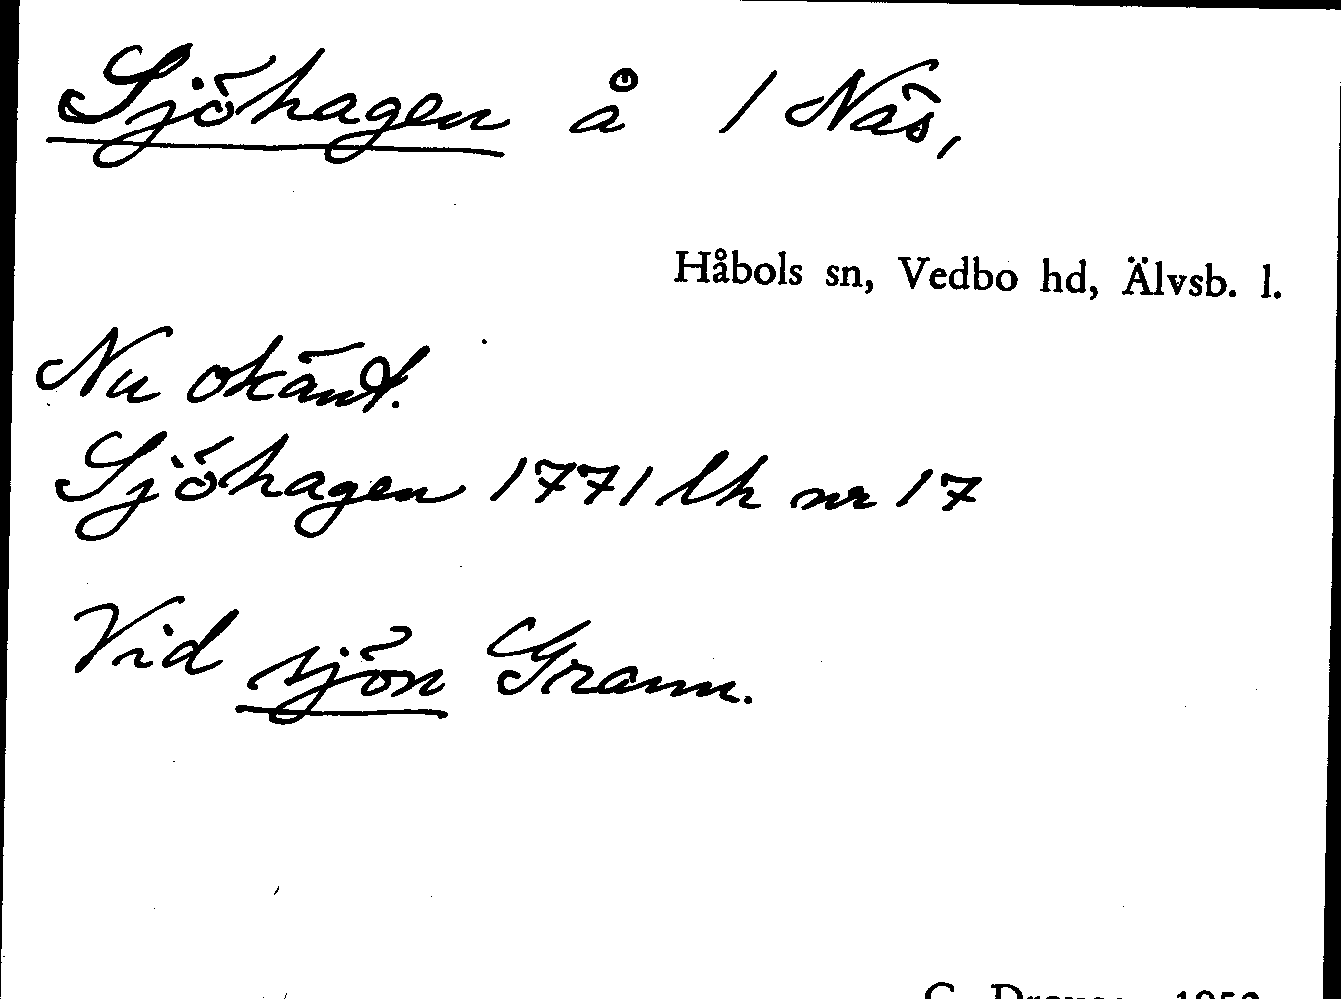 Sjöhagen å 1 Näs,
Håbols sn, Vedbo hd, Älvsb. l.
Nu okänt.
Sjöhagen 1771 lh nr 17
Vid sjön Grann.